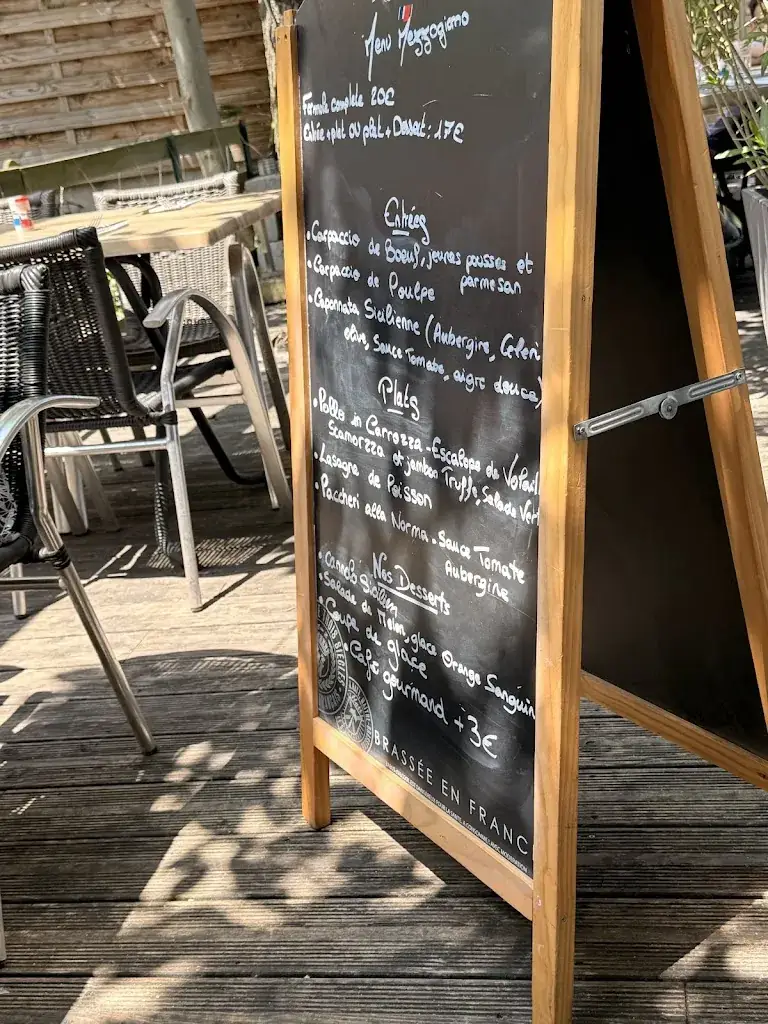 Menu Mezzogiorno
Formule complete 20€
Entrée + plat ou plat + Dessert : 17€
Entrées
• Carpaccio de Boeuf, jeunes pousses et
parmesan
• Carpaccio de Poulpe
• Caponnata Sicilienne (Aubergine, Celeri
olive, Sauce Tomate, aigre douce)
Plats
• Pollo in Carrozza - Escalope de Volaill
Scamorzza et jambon Truffe, Salade Vert
• Lasagne de Poisson
• Paccheri alla Norma - Sauce Tomate
Aubergine
Nos Desserts
• Cannolo Sicilien
• Salade de Melon, glace Orange Sanguin
• Coupe de glace
• Café gourmand +3€
BRASSÉE EN FRANC